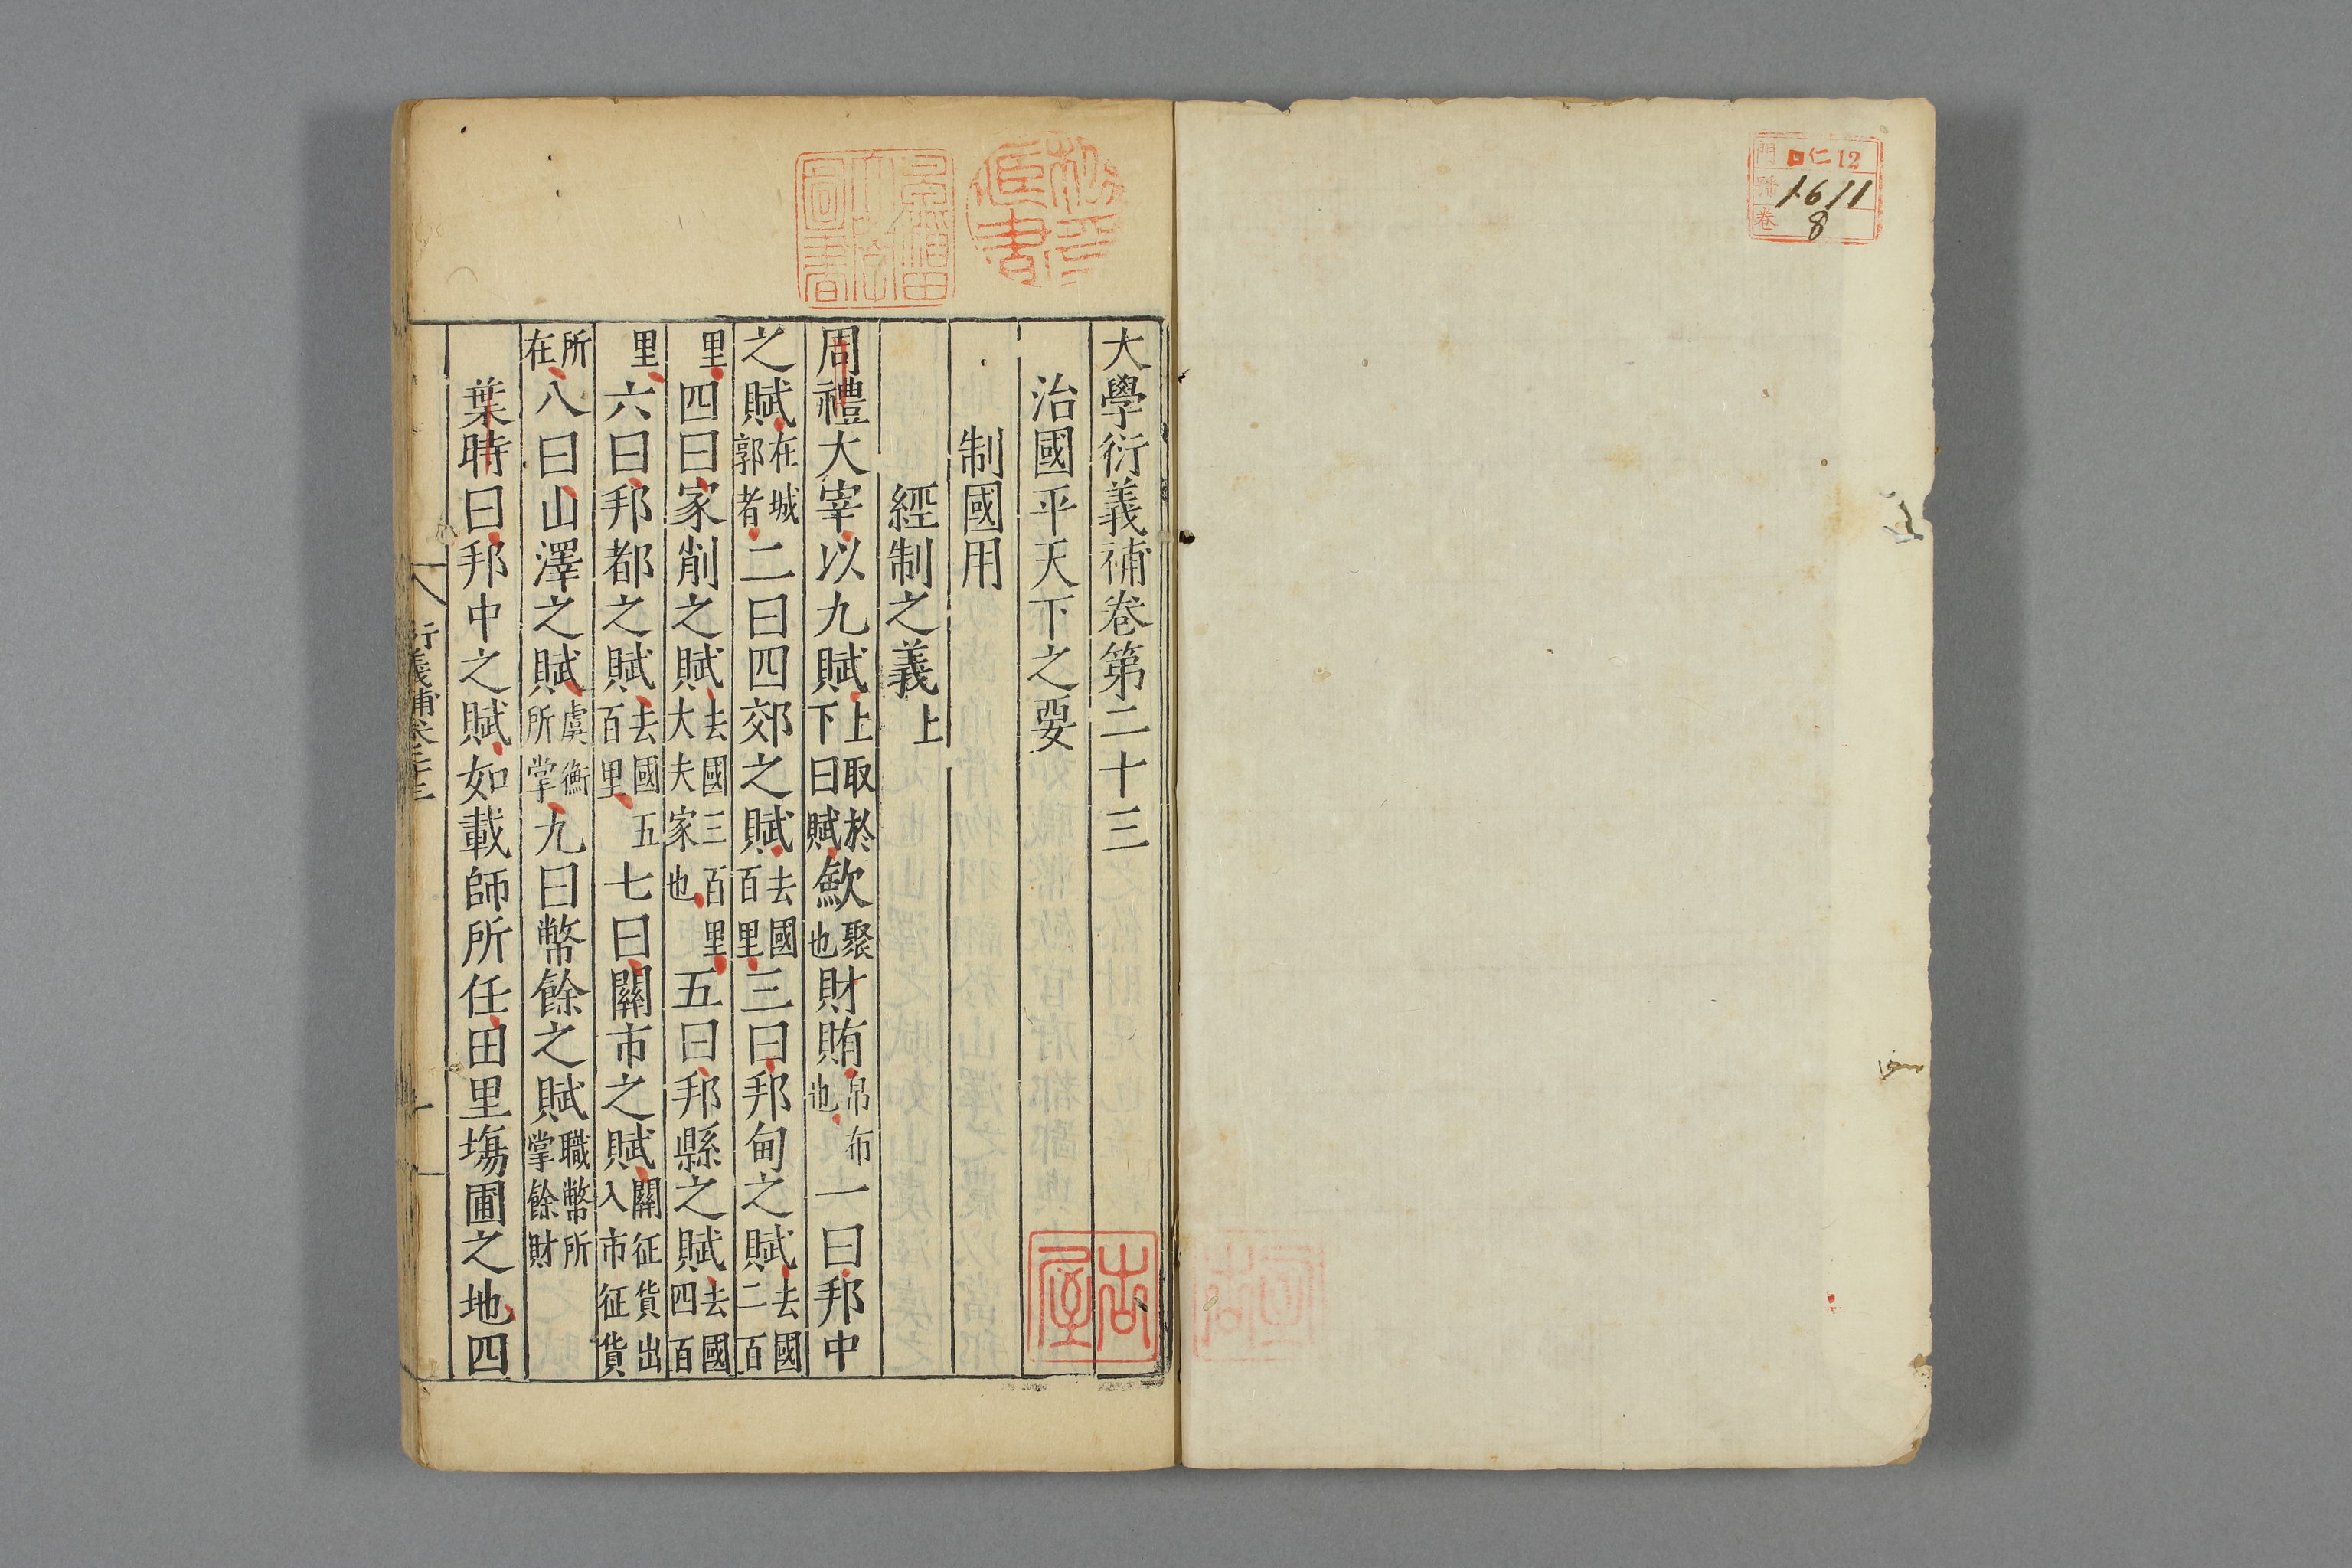 門 口仁12
號 1611
卷 8
大學衍義補卷第二十三
治國平天下之要
制國用
經制之義上
周禮大宰以九賦上取於下曰賦歛聚也財賄帛布也一曰邦中
之賦在城郭者二曰四郊之賦去國百里三曰邦甸之賦去國二百
里四曰家削之賦去國三百里大夫家也五曰邦縣之賦去國四百
里六曰邦都之賦去國五百里七曰關市之賦關征貨出入市征貨
所在八曰山澤之賦虞衡所掌九曰幣餘之賦職幣所掌餘財
葉時曰邦中之賦如載師所任田里塲圃之地四